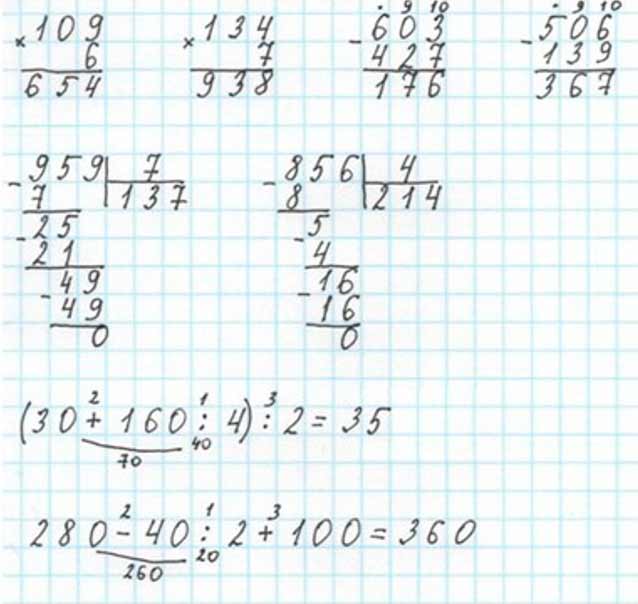 · 9 10 · 9 10
109 134 603 506
× 6 × 7 - 427 - 139
654 938 176 367
- 959 7 - 856 4
7 137 8 214
- 25 - 5
21 4
49 - 16
- 49 16
0 0
2 1 3
(30 + 160 : 4) : 2 = 35
70 40
2 1 3
280 - 40 : 2 + 100 = 360
260 20